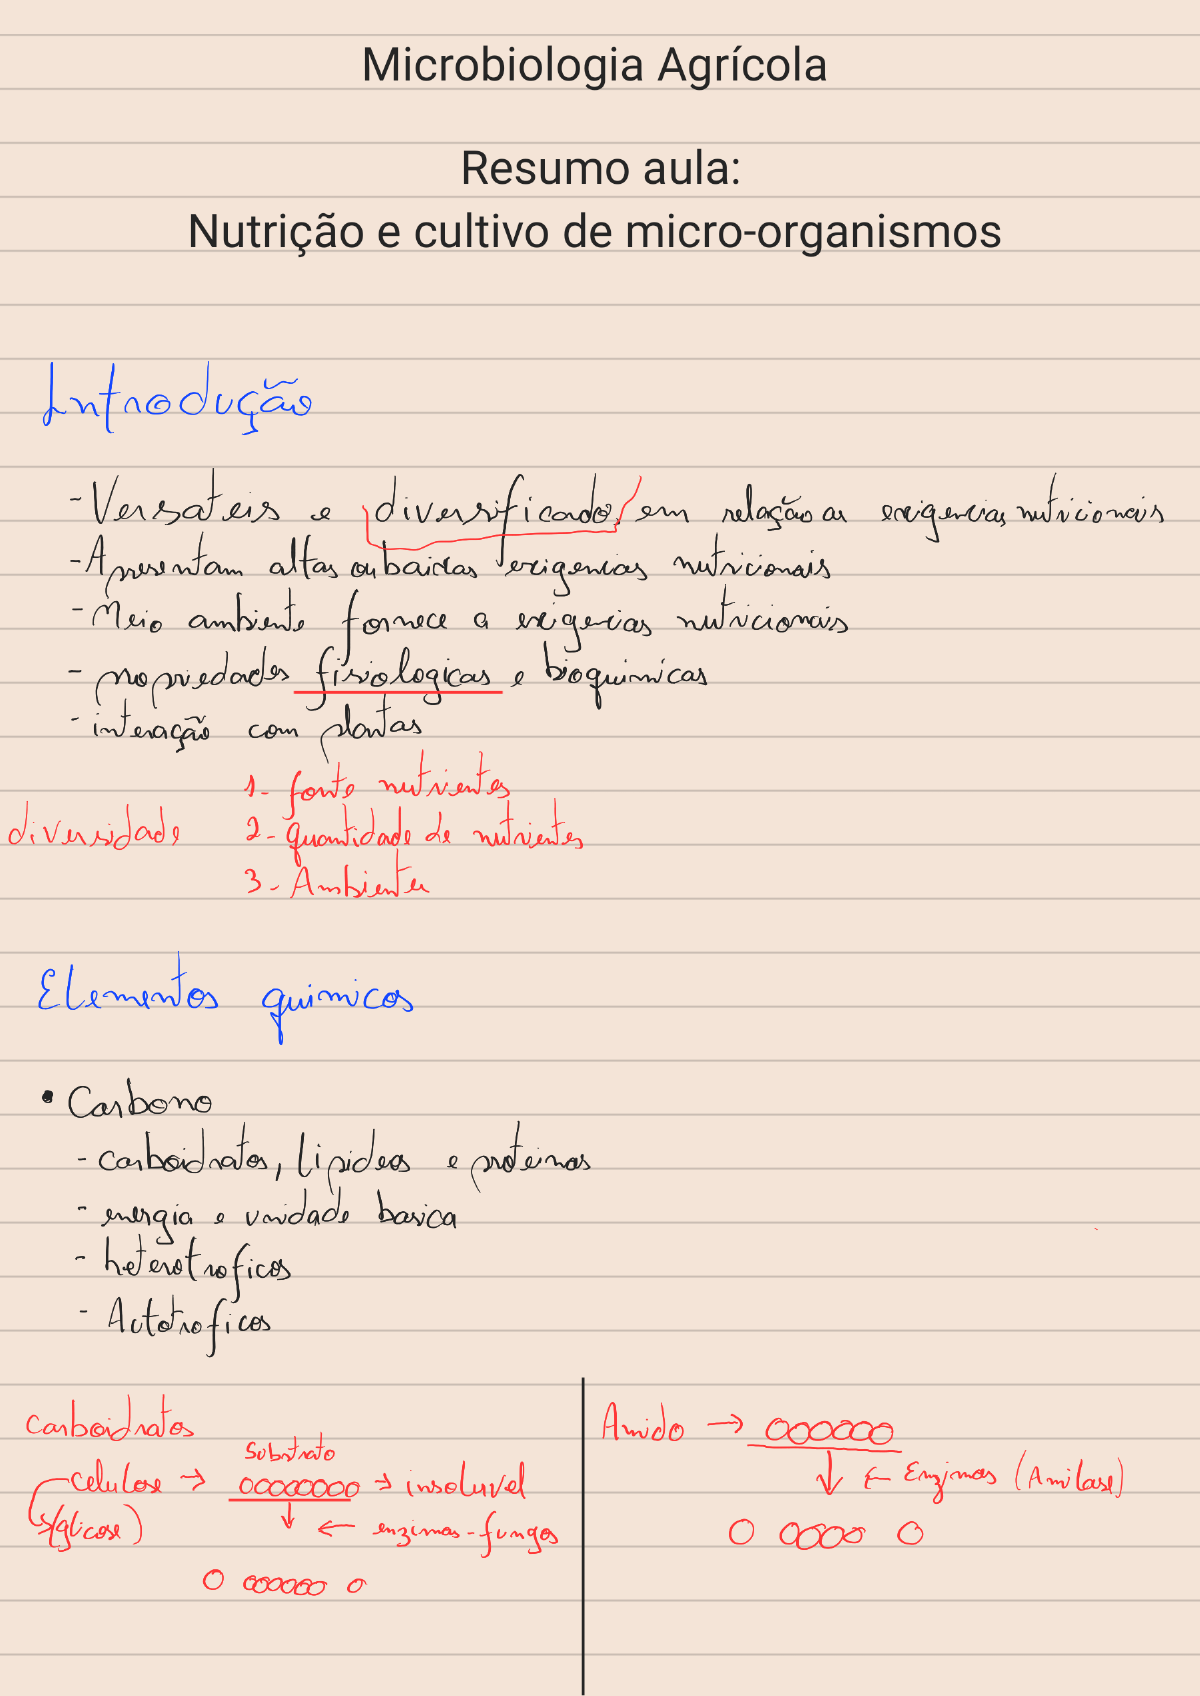 Microbiologia Agrícola
Resumo aula:
Nutrição e cultivo de micro-organismos
Introdução
- Versateis e diversificado, em relação as exigencias nutricionais
- Apresentam altas ou baixas exigencias nutricionais
- Meio ambiente fornece a exigecias nutricionais
- propriedades fisiologicas e bioquimicas
- interação com plantas
1- fonte nutrientes
diversidade 2- quantidade de nutrientes
3- Ambiente
Elementos quimicos
• Carbono
- carboidratos, lipideos e proteinas
- energia e unidade basica
- heterotroficos
- Autotroficos
carboidratos
Substrato
celulose → → insoluvel
(glicose) ↓ ← enzimas - fungos
Amido →
↓ ← Enzimas (Amilase)